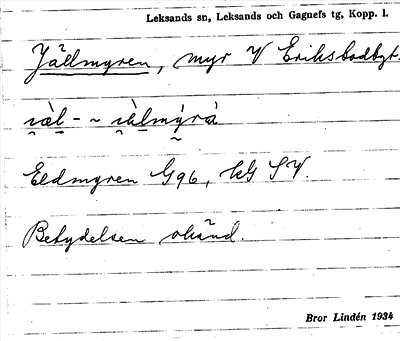 Leksands sn, Leksands och Gagnefs tg, Kopp. l.
Jällmyren, myr V Eriksbodbyt.
Eldmyren G96, kG SV.
Betydelsen okänd.
Bror Lindén 1934